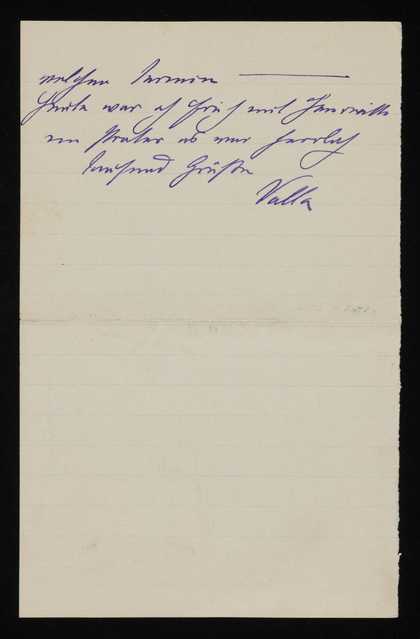 welchen Termin ———
Heute war ich früh mit Henriette
im Prater es war herrlich
Tausend Grüße
Valla